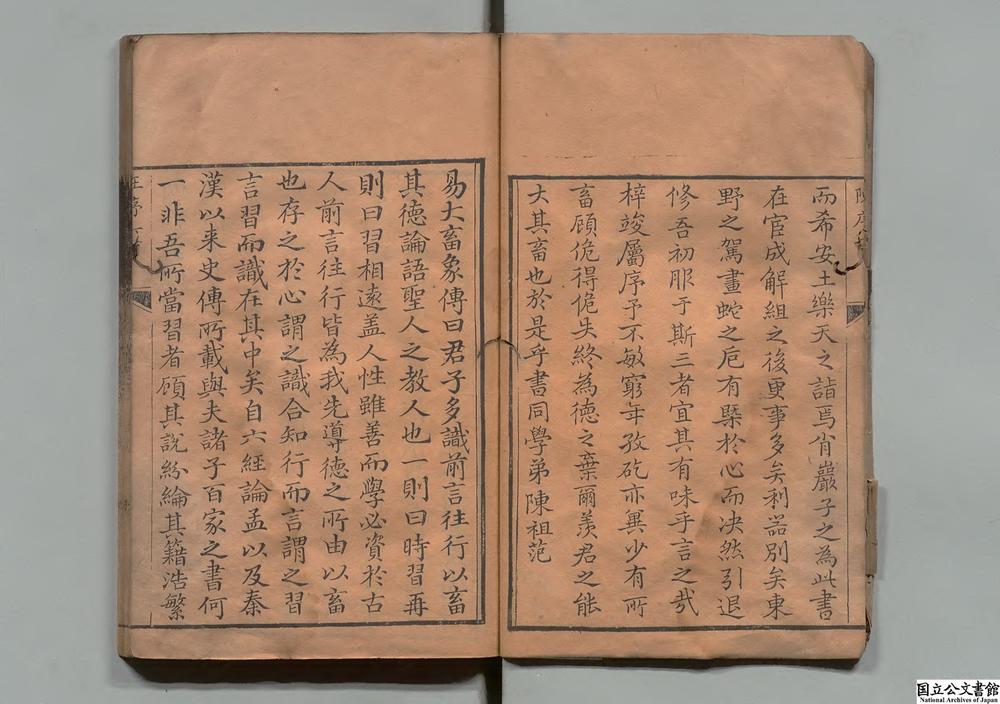 而希安土樂天之詣焉肖巖子之為此書
在宦成解組之後更事多矣利器別矣東
野之駕畫蛇之巵有槩於心而决然引退
修吾初服于斯三者宜其有味乎言之㢤
梓竣屬序予不敏窮年孜矻亦兾少有所
畜顧佹得佹失終為德之棄爾羨君之能
大其畜也於是乎書同學弟陳祖范
易大畜象傳曰君子多識前言往行以畜
其德論語聖人之教人也一則曰時習再
則曰習相逺盖人性雖善而學必資於古
人前言往行皆為我先導德之所由以畜
也存之於心謂之識合知行而言謂之習
言習而識在其中矣自六經論孟以及秦
漢以来史傳所載與夫諸子百家之書何
一非吾所當習者顧其說紛綸其籍浩繁
国立公文書館
National Archives of Japan